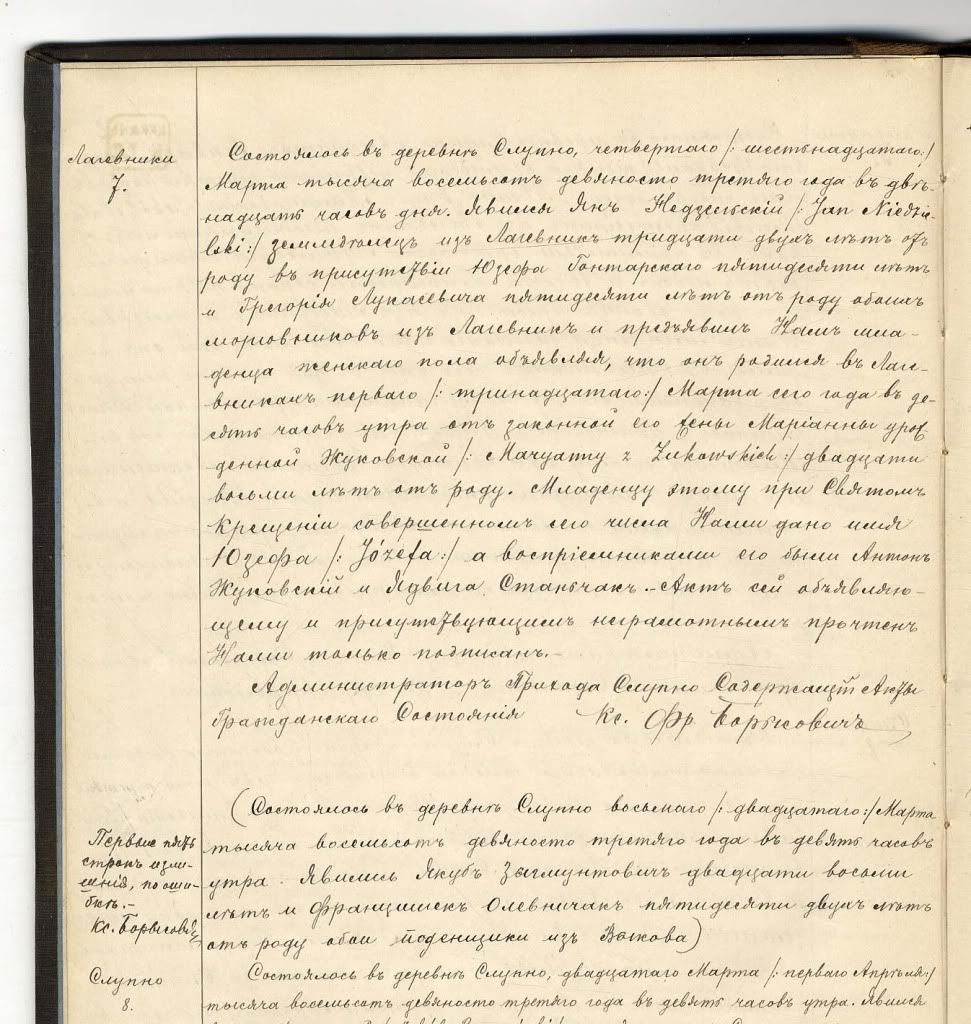 Лагевники
7.
Состоялось въ деревнѣ Слупно, четвертаго /: шестьнадцатаго :/
Марта тысяча восемьсотъ девяносто третяго года въ двѣ-
надцать часовъ дня. Явился Янъ Недзельскій /: Jan Niedzie-
lski :/ земледѣлецъ изъ Лагевникъ тридцати двухъ лѣтъ отъ
роду въ присутствіи Юзефа Гонтарскаго пятидесяти лѣтъ
и Грегорія Лукасевича пятидесяти лѣтъ отъ роду обоихъ
изъ Лагевникъ и предъявилъ Намъ мла-
денца женскаго пола объявляя, что онъ родился въ Лаге-
вникахъ перваго /: тринадцатаго :/ Марта сего года въ де-
сять часовъ утра отъ законной его жены Маріанны урож
денной Жуковской /: Maryanny z Żukowskich :/ двадцати
восьми лѣтъ отъ роду. Младенцу этому при Святомъ
Крещеніи совершенномъ сего числа Нами дано имя
Юзефа /: Józefa :/ а воспріемниками его были Антонъ
Жуковскій и Ядвига Станьчакъ. - Актъ сей объявляю-
щему и присутствующимъ неграмотнымъ прочтенъ
Нами только подписанъ. -
Администраторъ Прихода Слупно Содержащій Акты
Гражданскаго Состоянія Кс. Фр. Борысовичъ
(Состоялось въ деревнѣ Слупно восьмаго /: двадцатаго :/ Марта
тысяча восемьсотъ девяносто третяго года въ девять часовъ
утра. Явились Якубъ Зыгмунтовичъ двадцати восьми
лѣтъ и Францишекъ Олевничакъ пятидесяти двухъ лѣтъ
отъ роду обои поденщики изъ)
Первые пять
строкъ изли-
шнія, по оши-
бкѣ. -
Кс. Борысовичъ
Слупно
8.
Состоялось въ деревнѣ Слупно, двадцатаго Марта /: перваго Апрѣля :/
тысяча восемьсотъ девяносто третяго года въ девять часовъ утра. Явился